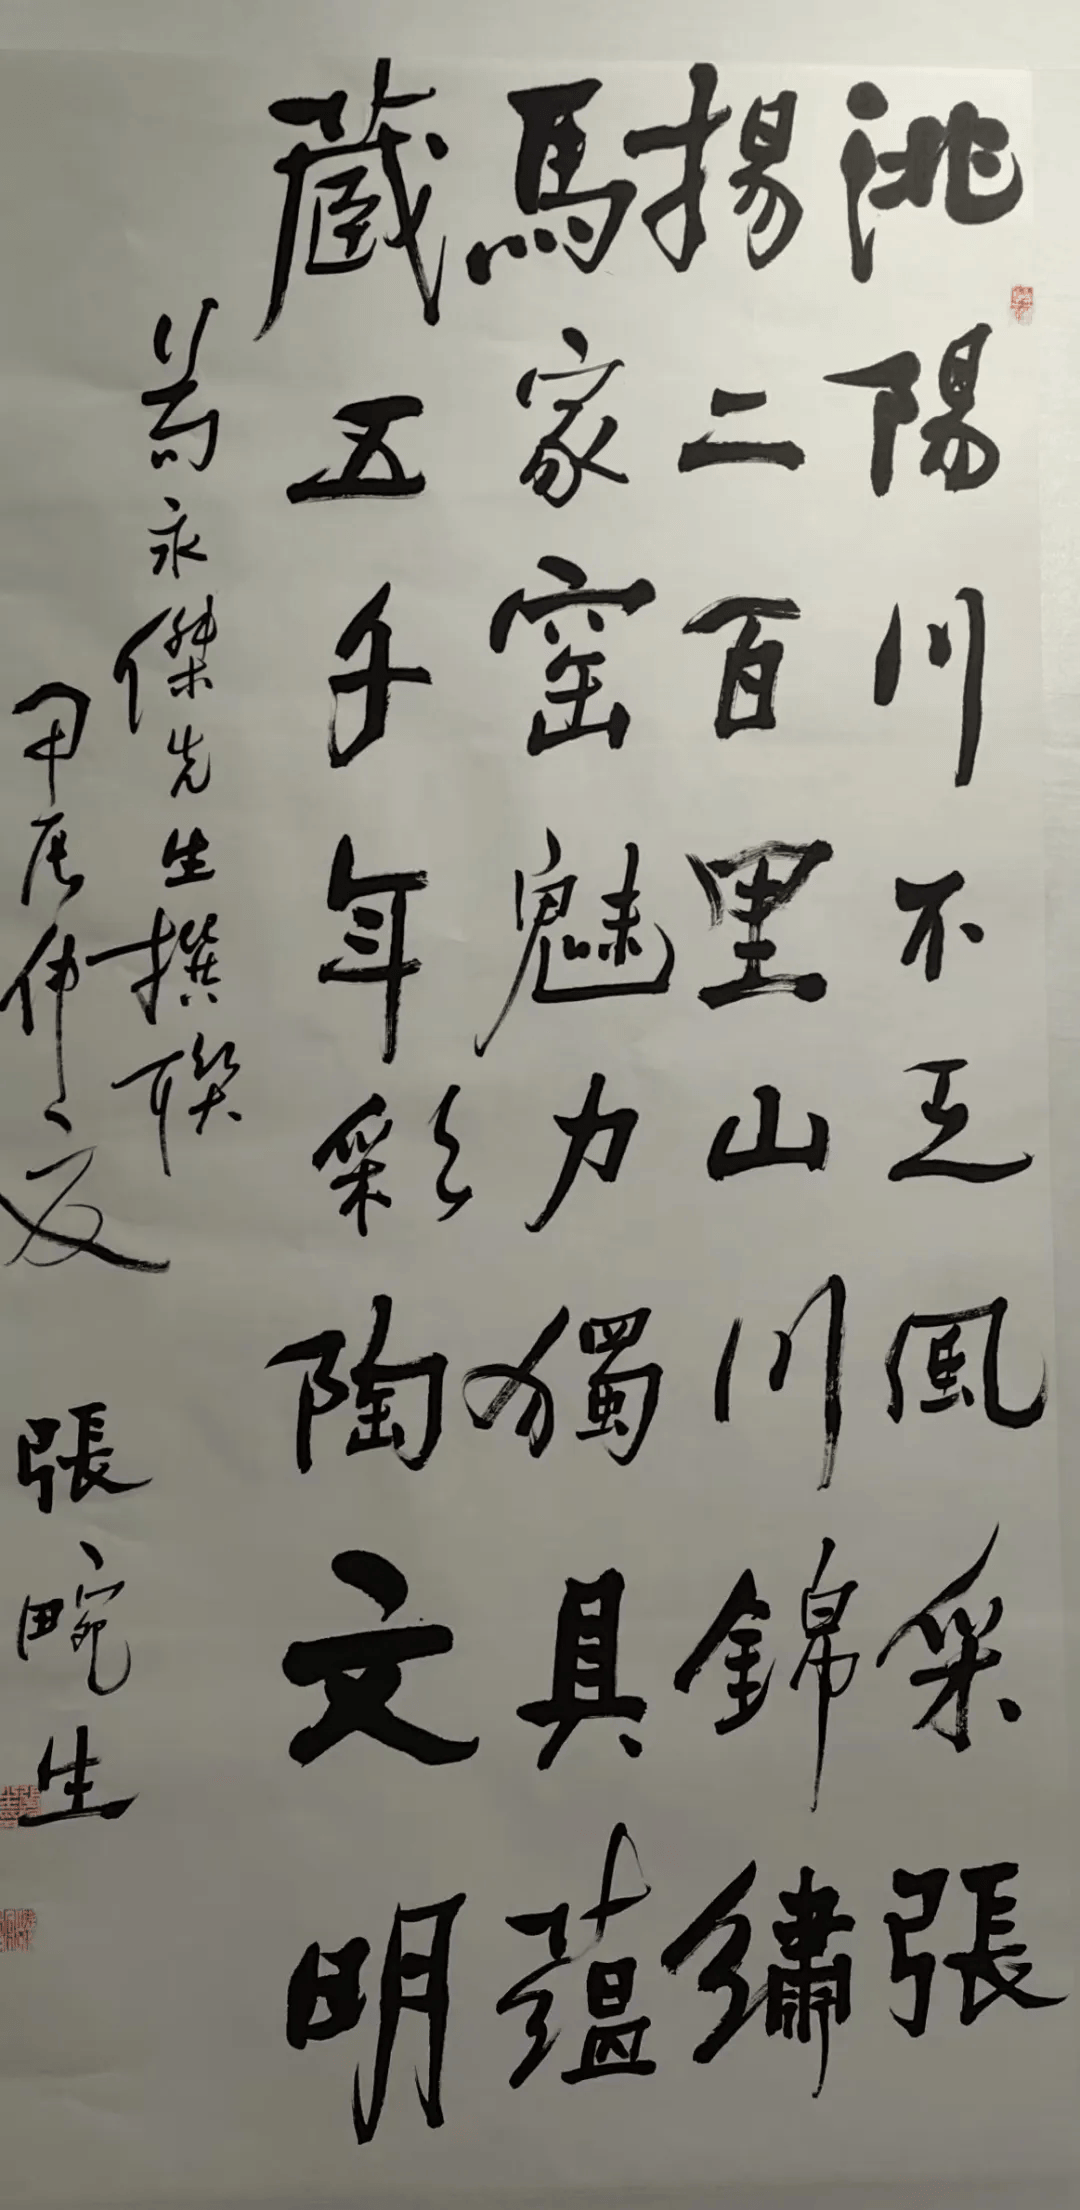 洮陽川不乏風采張
揚二百里山川錦繡
馬家窑魅力獨具蕴
藏五千年彩陶文明
為永傑先生撰聯
甲辰仲夏 張畹生